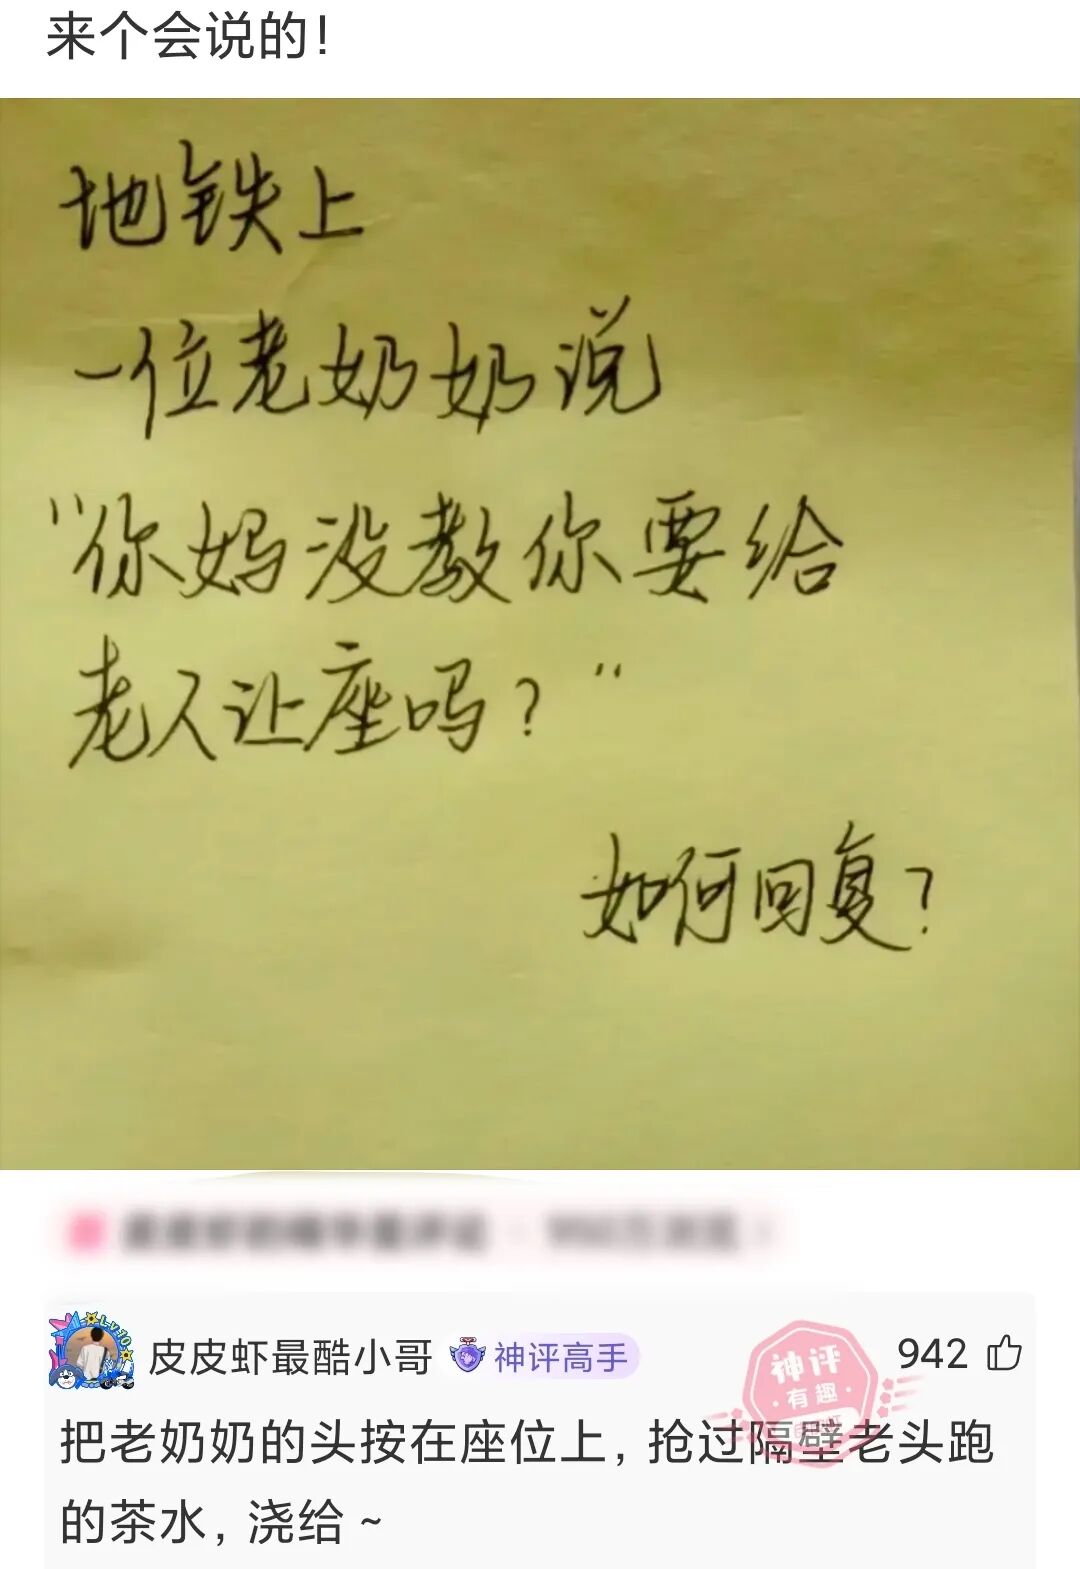 来个会说的！
地铁上
一位老奶奶说
“你妈没教你要给
老人让座吗？”
如何回复？
皮皮虾最酷小哥 神评高手 942
神评
·有趣·
把老奶奶的头按在座位上，抢过隔壁老头跑
的茶水，浇给～